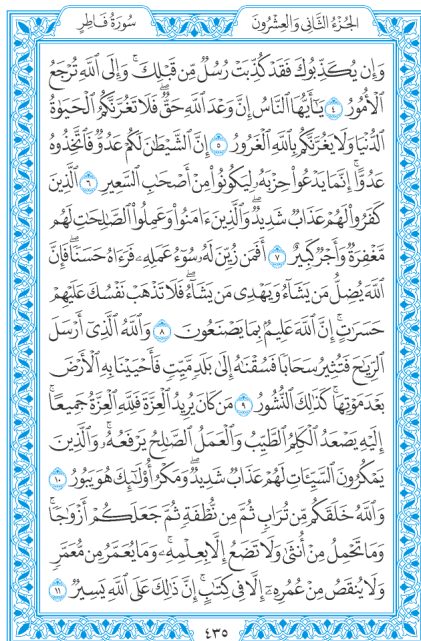 الجُزْءُ الثَّانِي وَالعِشْرُونَ
سُورَةُ فَاطِرٍ
وَإِن يُكَذِّبُوكَ فَقَدْ كُذِّبَتْ رُسُلٌ مِّن قَبْلِكَ ۚ وَإِلَى ٱللَّهِ تُرْجَعُ
ٱلْأُمُورُ ٤ يَٰٓأَيُّهَا ٱلنَّاسُ إِنَّ وَعْدَ ٱللَّهِ حَقٌّ ۖ فَلَا تَغُرَّنَّكُمُ ٱلْحَيَوٰةُ
ٱلدُّنْيَا وَلَا يَغُرَّنَّكُم بِٱللَّهِ ٱلْغَرُورُ ٥ إِنَّ ٱلشَّيْطَٰنَ لَكُمْ عَدُوٌّ فَٱتَّخِذُوهُ
عَدُوًّا ۚ إِنَّمَا يَدْعُوا۟ حِزْبَهُۥ لِيَكُونُوا۟ مِنْ أَصْحَٰبِ ٱلسَّعِيرِ ٦ ٱلَّذِينَ
كَفَرُوا۟ لَهُمْ عَذَابٌ شَدِيدٌ ۖ وَٱلَّذِينَ ءَامَنُوا۟ وَعَمِلُوا۟ ٱلصَّٰلِحَٰتِ لَهُم
مَّغْفِرَةٌ وَأَجْرٌ كَبِيرٌ ٧ أَفَمَن زُيِّنَ لَهُۥ سُوٓءُ عَمَلِهِۦ فَرَءَاهُ حَسَنًا ۖ فَإِنَّ
ٱللَّهَ يُضِلُّ مَن يَشَآءُ وَيَهْدِى مَن يَشَآءُ ۖ فَلَا تَذْهَبْ نَفْسُكَ عَلَيْهِمْ
حَسَرَٰتٍ ۚ إِنَّ ٱللَّهَ عَلِيمٌۢ بِمَا يَصْنَعُونَ ٨ وَٱللَّهُ ٱلَّذِىٓ أَرْسَلَ
ٱلرِّيَٰحَ فَتُثِيرُ سَحَابًا فَسُقْنَٰهُ إِلَىٰ بَلَدٍ مَّيِّتٍ فَأَحْيَيْنَا بِهِ ٱلْأَرْضَ
بَعْدَ مَوْتِهَا ۚ كَذَٰلِكَ ٱلنُّشُورُ ٩ مَن كَانَ يُرِيدُ ٱلْعِزَّةَ فَلِلَّهِ ٱلْعِزَّةُ جَمِيعًا ۚ
إِلَيْهِ يَصْعَدُ ٱلْكَلِمُ ٱلطَّيِّبُ وَٱلْعَمَلُ ٱلصَّٰلِحُ يَرْفَعُهُۥ ۚ وَٱلَّذِينَ
يَمْكُرُونَ ٱلسَّيِّـَٔاتِ لَهُمْ عَذَابٌ شَدِيدٌ ۖ وَمَكْرُ أُو۟لَٰٓئِكَ هُوَ يَبُورُ ١٠
وَٱللَّهُ خَلَقَكُم مِّن تُرَابٍ ثُمَّ مِن نُّطْفَةٍ ثُمَّ جَعَلَكُمْ أَزْوَٰجًا ۚ
وَمَا تَحْمِلُ مِنْ أُنثَىٰ وَلَا تَضَعُ إِلَّا بِعِلْمِهِۦ ۚ وَمَا يُعَمَّرُ مِن مُّعَمَّرٍ
وَلَا يُنقَصُ مِنْ عُمُرِهِۦٓ إِلَّا فِى كِتَٰبٍ ۚ إِنَّ ذَٰلِكَ عَلَى ٱللَّهِ يَسِيرٌ ١١
٤٣٥